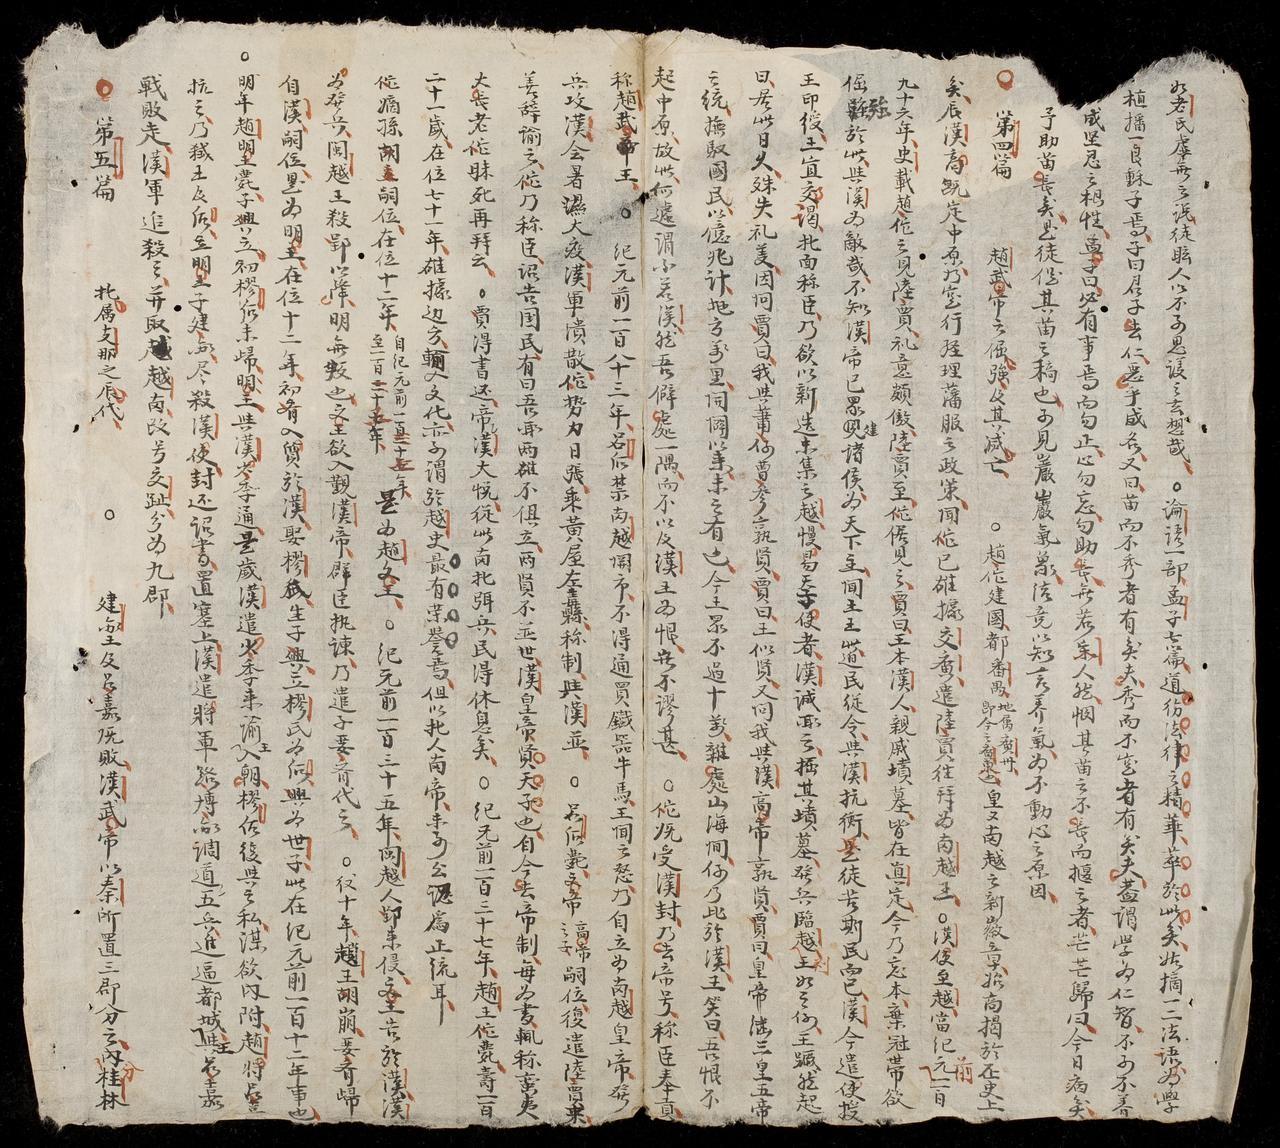 如老氏虛無之說徒眩人以不可思議之云想哉 ○論語一部孟子七篇道彷法律之精華萃於此矣姑摘一二法語為學
植播一良穌子焉子曰君子去仁惡乎成名又曰苗而不秀者有矣夫秀而不室者有矣夫蓋謂學為仁智不可不養
成堅忍之根性孟子曰必有事焉而勿正心勿忘勿助長無若宋人然憫其苗之不長而揠之者芒芒歸曰今日病矣
予助苗長矣其苗之稿也可見巖巖氣象浩竟以知言養氣為不動心之原因
○ 第四篇 趙武帝之倔強及其滅亡 ○ 趙佗建國都番禺地属廣州即今之廣東也皇又南越之新徽章始高揭於歷史上
矣辰漢高既定中原乃室行経理藩服之政策聞佗已雄據交廣遣陸賈往拜為南越王 ○漢使至越當紀元前一百
九十六年史載趙佗之見陸賈礼意頗傲陸賈至佗倨見之賈曰王本漢人親戚墳墓皆在真定今乃忘本棄社帶欲
倔強於此與漢為敵哉不知漢帝已累建諸侯為天下主聞王王此道民徒令與漢抗衡是徒苦斯民而已漢今遣使授
王印綬王宜交謁北面称臣乃欲以新造未集之越慢易天子使者漢誠取之掘其墳墓發兵臨越王如之何王蹶然起
曰居此日久殊失礼義因问賈曰我與蕭何曹參孰賢賈曰王似賢又问我與漢高帝孰賢賈曰皇帝继三皇五帝
之統撫馭國民以億兆計地方萬里同國以來未之有也今王眾不過十萬雜處山海間何乃比於漢王笑曰吾恨不
起中原故此何處謂不若漢然吾僻處一隅而不以及漢王為恨豈不謬甚 ○佗既受漢封乃去帝号称臣奉貢
称趙武王 ○ 紀元前一百八十三年吕后禁南越關市不得通買鐵器牛馬王聞之怒乃自立為南越皇帝發
兵攻漢会暑濕大疫漢軍潰散佗势力日張乘黃屋左纛称制與漢並 ○ 吕后薨文帝高帝之子嗣位復遣陸賈來
善辞諭之佗乃称臣詔告国民有曰吾聞兩雄不俱立兩賢不並世漢皇帝賢天子也自今去帝制每為書輒称蛮夷
大長老佗昧死再拜云 ○賈得書还帝漢大悅從此南北弭兵民得休息矣 ○ 紀元前一百三十七年趙王佗薨壽一百
二十一歲在位七十一年雄據边方輸入文化亦可謂於越史最有荣譽焉但以北人南帝未可公認為正統耳
佗嫡孫胡嗣位在位十二年自紀元前一百三十七年至一百二十五年是為趙文王 ○ 紀元前一百三十五年闽越人郢来侵文王告於漢漢
為發兵闽越王殺郢以降明無敵也文王欲入覲漢帝群臣执諫乃遣子婴齐代之 ○ 仅十年趙王胡崩婴齐歸
自漢嗣位是為明王在位十二年初婴齐入質於漢娶樛氏生子興立樛氏為后興為世子此在紀元前一百十二年事也
○明年趙明王薨子興立初樛后未歸明王與漢安季通是歲漢遣安季来諭王入朝樛后復與之私谋欲內附趙將吕嘉
抗之乃弒王及后立明王子建尽殺漢使封还詔書置塞上漢遣將軍路博德調遣五兵進逼都城王與吕嘉
戰敗走漢軍追殺之并取越南改号交趾分為九郡
○ 第五篇 北属支那之辰代 ○ 建王及吕嘉既敗漢武帝以秦所置三郡分之分內桂林